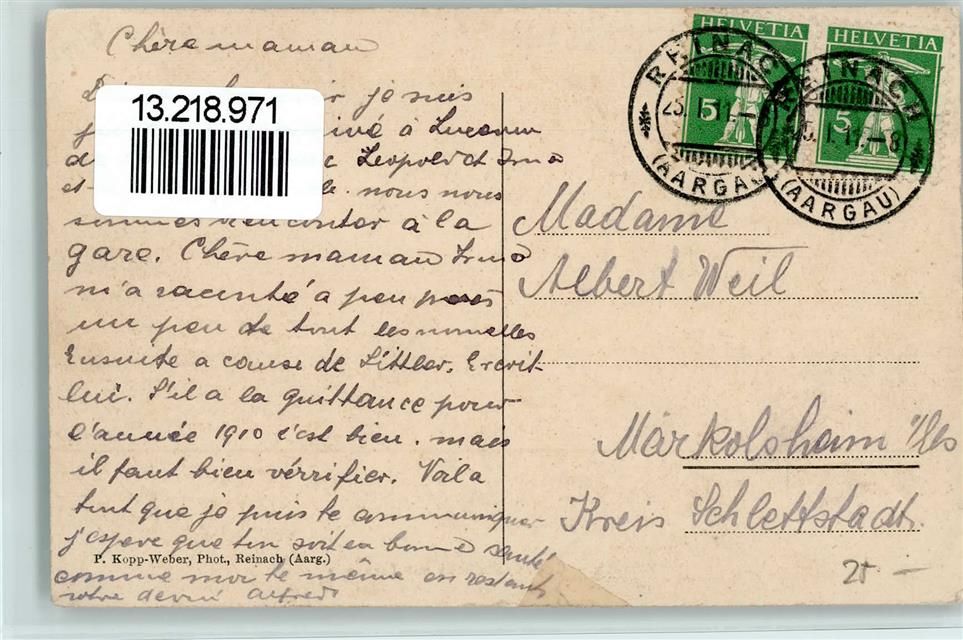 Chère maman
13.218.971
je suis
à Lucerne
Leopold et Irma
et nous nous
sommes rencontor à la
gare. Chère maman Irma
m'a raconté a peu près
un peu de tout les nouvelles
Ensuite a cause de Littler. Ecrit-
lui. S'il a la quittance pour
l'année 1910 c'est bien. mais
il faut bien vérrifier. Voila
tout que je puis te communiquer
j'espere que ten soit en bonne santé
comme moi te même en restant
votre devoué Alfred
P. Kopp-Weber, Phot., Reinach (Aarg.)
HELVETIA
5
HELVETIA
5
REINACH
25. I. 11.-8
(AARGAU)
REINACH
25. I. 11.-8
(AARGAU)
Madame
Albert Weil
Markolsheim i/Els
Kreis Schlettstadt.
25.-